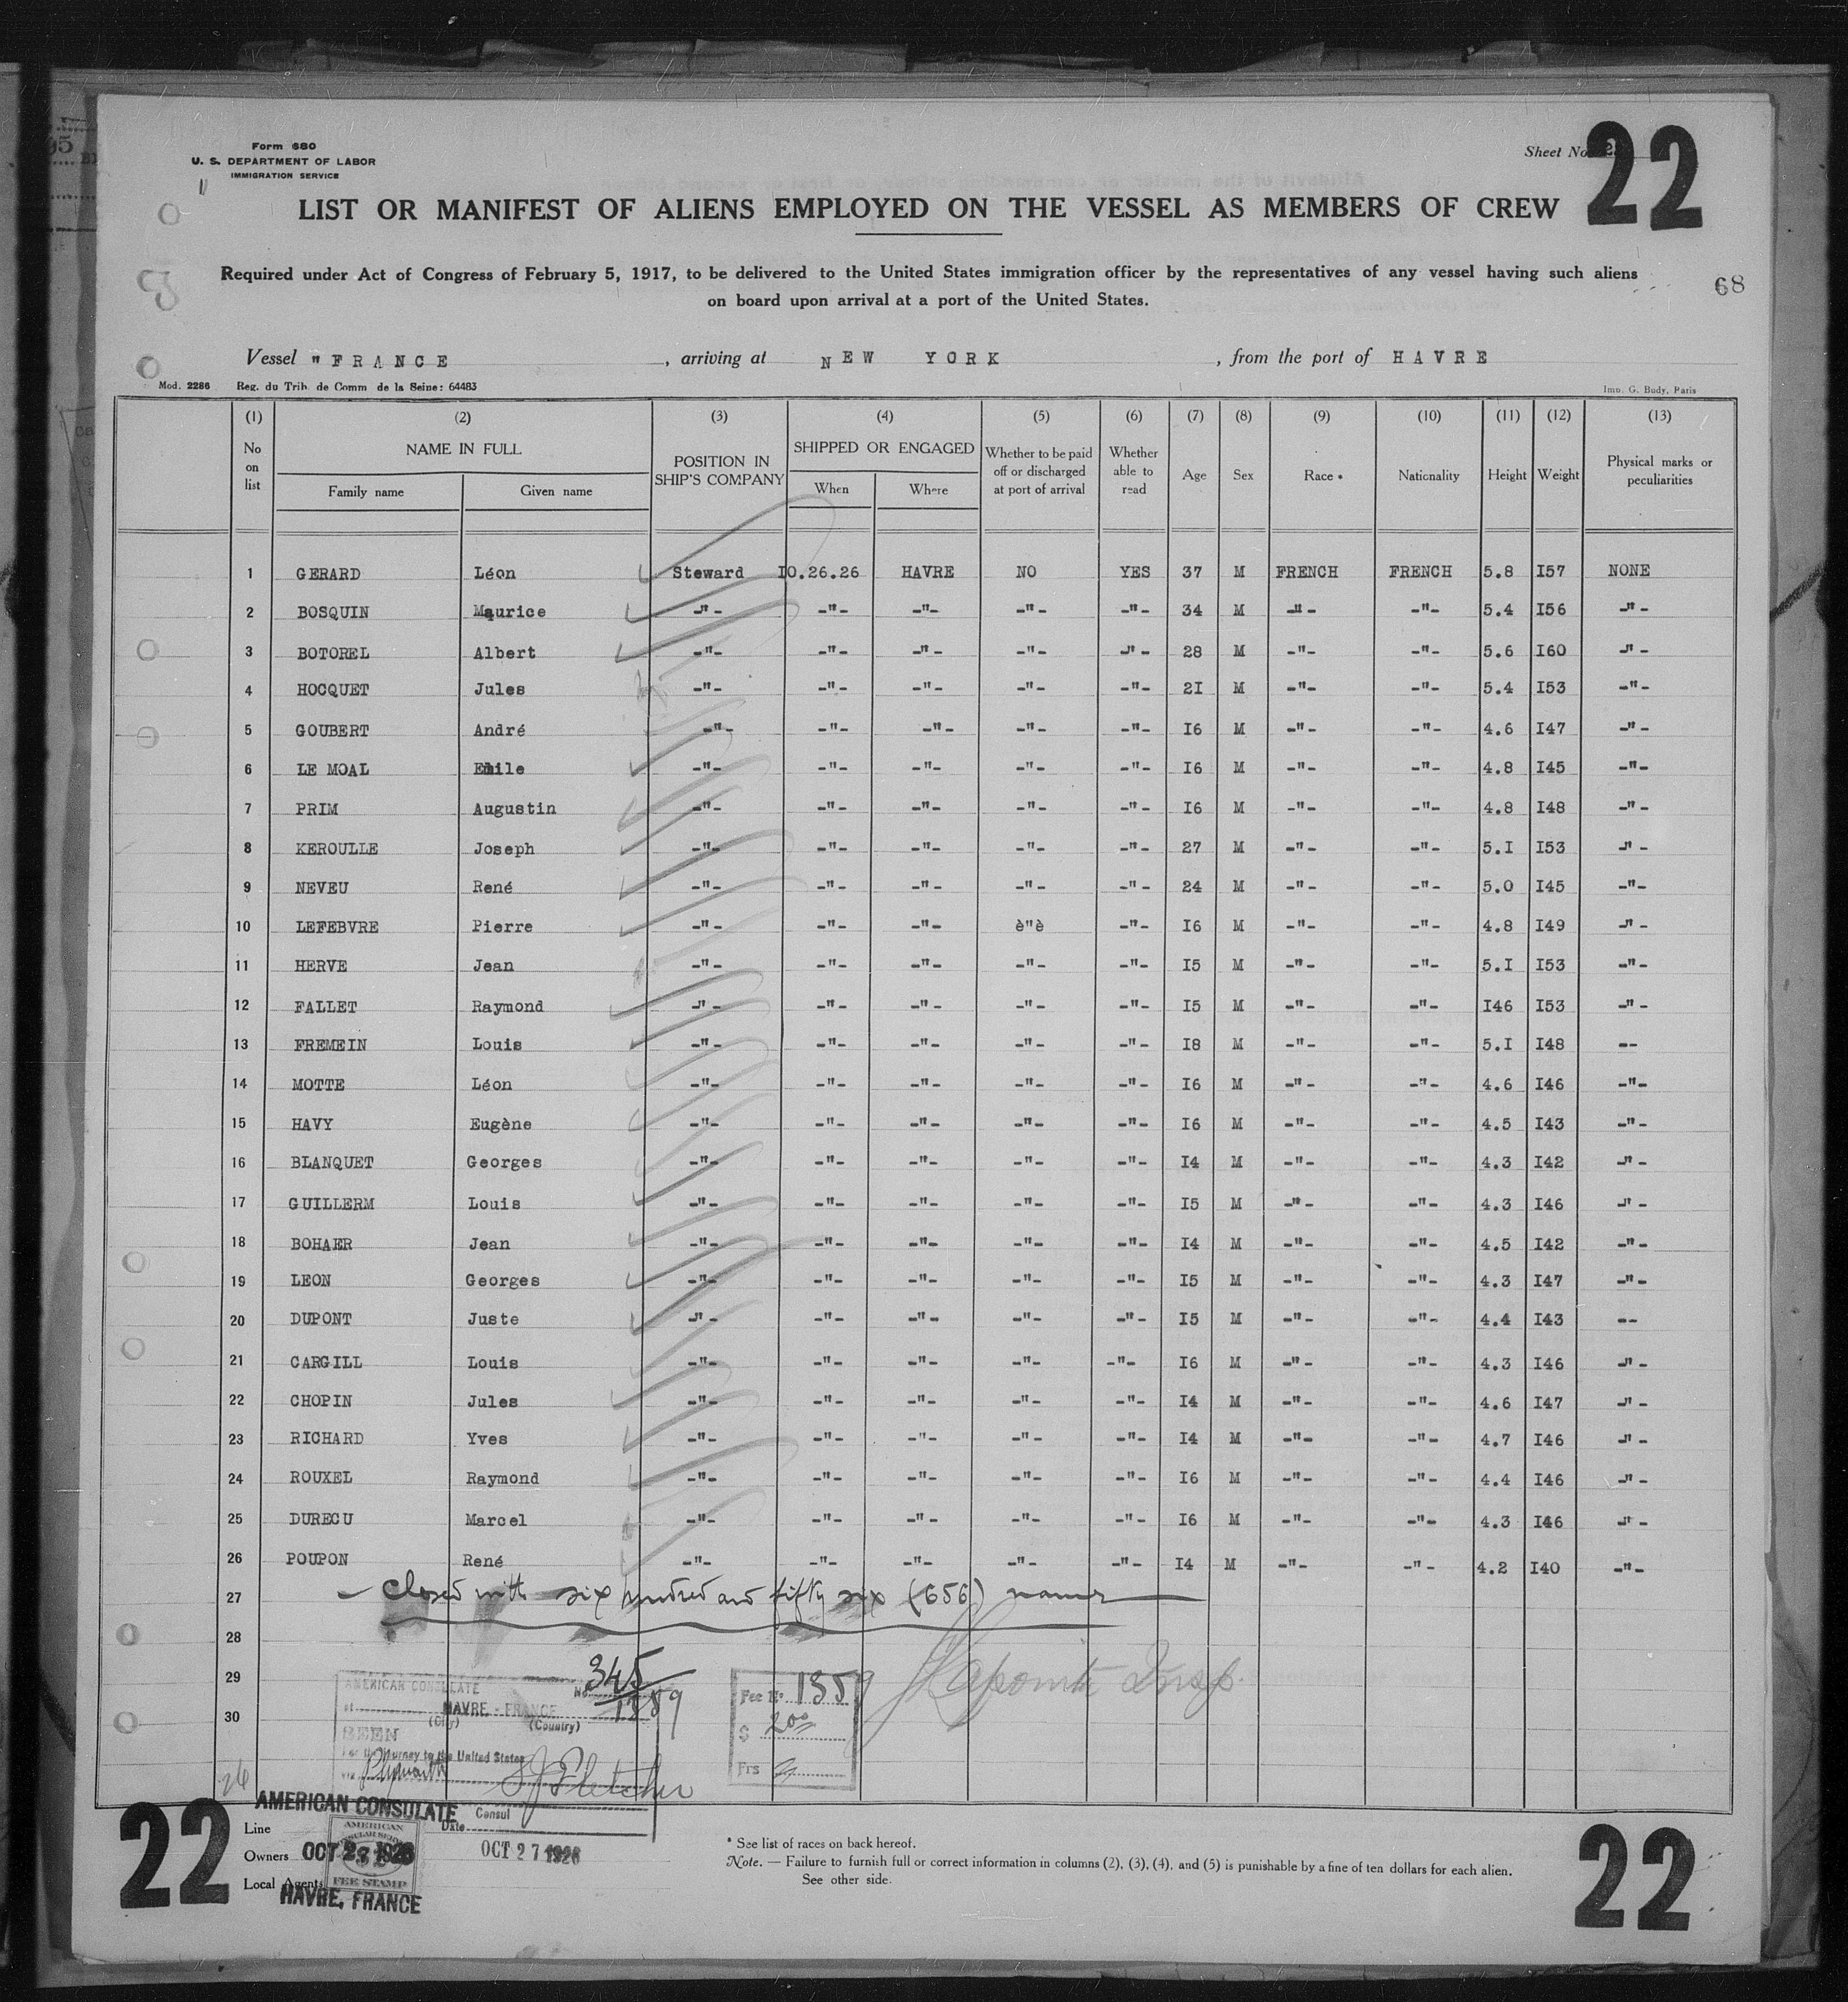 Form 680
U. S. DEPARTMENT OF LABOR
IMMIGRATION SERVICE
Sheet No
22
LIST OR MANIFEST OF ALIENS EMPLOYED ON THE VESSEL AS MEMBERS OF CREW
Required under Act of Congress of February 5, 1917, to be delivered to the United States immigration officer by the representatives of any vessel having such aliens
on board upon arrival at a port of the United States.
68
Vessel "FRANCE , arriving at NEW YORK , from the port of HAVRE
Mod. 2286 Reg. du Trib. de Comm de la Seine: 64483 Imp. G. Body, Paris
(1) (2) (3) (4) (5) (6) (7) (8) (9) (10) (11) (12) (13)
No on list NAME IN FULL POSITION IN SHIP'S COMPANY SHIPPED OR ENGAGED Whether to be paid off or discharged at port of arrival Whether able to read Age Sex Race * Nationality Height Weight Physical marks or peculiarities
Family name Given name When Where
1 GERARD Léon Steward 10.26.26 HAVRE NO YES 37 M FRENCH FRENCH 5.8 I57 NONE
2 BOSQUIN Maurice -"- -"- -"- -"- -"- 34 M -"- -"- 5.4 I56 -"-
3 BOTOREL Albert -"- -"- -"- -"- -"- 28 M -"- -"- 5.6 I60 -"-
4 HOCQUET Jules -"- -"- -"- -"- -"- 2I M -"- -"- 5.4 I53 -"-
5 GOUBERT André -"- -"- -"- -"- -"- I6 M -"- -"- 4.6 I47 -"-
6 LE MOAL Emile -"- -"- -"- -"- -"- I6 M -"- -"- 4.8 I45 -"-
7 PRIM Augustin -"- -"- -"- -"- -"- I6 M -"- -"- 4.8 I48 -"-
8 KEROULLE Joseph -"- -"- -"- -"- -"- 27 M -"- -"- 5.I I53 -"-
9 NEVEU René -"- -"- -"- -"- -"- 24 M -"- -"- 5.0 I45 -"-
10 LEFEBVRE Pierre -"- -"- -"- è"è -"- I6 M -"- -"- 4.8 I49 -"-
11 HERVE Jean -"- -"- -"- -"- -"- I5 M -"- -"- 5.I I53 -"-
12 FALLET Raymond -"- -"- -"- -"- -"- I5 M -"- -"- I46 I53 -"-
13 FREMEIN Louis -"- -"- -"- -"- -"- I8 M -"- -"- 5.I I48 --
14 MOTTE Léon -"- -"- -"- -"- -"- I6 M -"- -"- 4.6 I46 -"-
15 HAVY Eugène -"- -"- -"- -"- -"- I6 M -"- -"- 4.5 I43 -"-
16 BLANQUET Georges -"- -"- -"- -"- -"- I4 M -"- -"- 4.3 I42 -"-
17 GUILLERM Louis -"- -"- -"- -"- -"- I5 M -"- -"- 4.3 I46 -"-
18 BOHAER Jean -"- -"- -"- -"- -"- I4 M -"- -"- 4.5 I42 -"-
19 LEON Georges -"- -"- -"- -"- -"- I5 M -"- -"- 4.3 I47 -"-
20 DUPONT Juste -"- -"- -"- -"- -"- I5 M -"- -"- 4.4 I43 --
21 CARGILL Louis -"- -"- -"- -"- -"- I6 M -"- -"- 4.3 I46 -"-
22 CHOPIN Jules -"- -"- -"- -"- -"- I4 M -"- -"- 4.6 I47 -"-
23 RICHARD Yves -"- -"- -"- -"- -"- I4 M -"- -"- 4.7 I46 -"-
24 ROUXEL Raymond -"- -"- -"- -"- -"- I6 M -"- -"- 4.4 I46 -"-
25 DURECU Marcel -"- -"- -"- -"- -"- I6 M -"- -"- 4.3 I46 -"-
26 POUPON René -"- -"- -"- -"- -"- I4 M -"- -"- 4.2 I40 -"-
27 Closed with six hundred and fifty six (656) names
28
29
30
AMERICAN CONSULATE No. 345
1359
at HAVRE - FRANCE
(City) (Country)
SEEN
For the journey to the United States
via Plymouth
Fletcher
Consul
Date OCT 27 1926
Fee No 1359
$ 2.00
Frs
26
AMERICAN CONSULATE
OCT 27 1926
HAVRE, FRANCE
AMERICAN
CONSULAR SERVICE
FEE STAMP
Line
Owners
Local Agents
* See list of races on back hereof.
Note. — Failure to furnish full or correct information in columns (2), (3), (4), and (5) is punishable by a fine of ten dollars for each alien.
See other side.
22
22